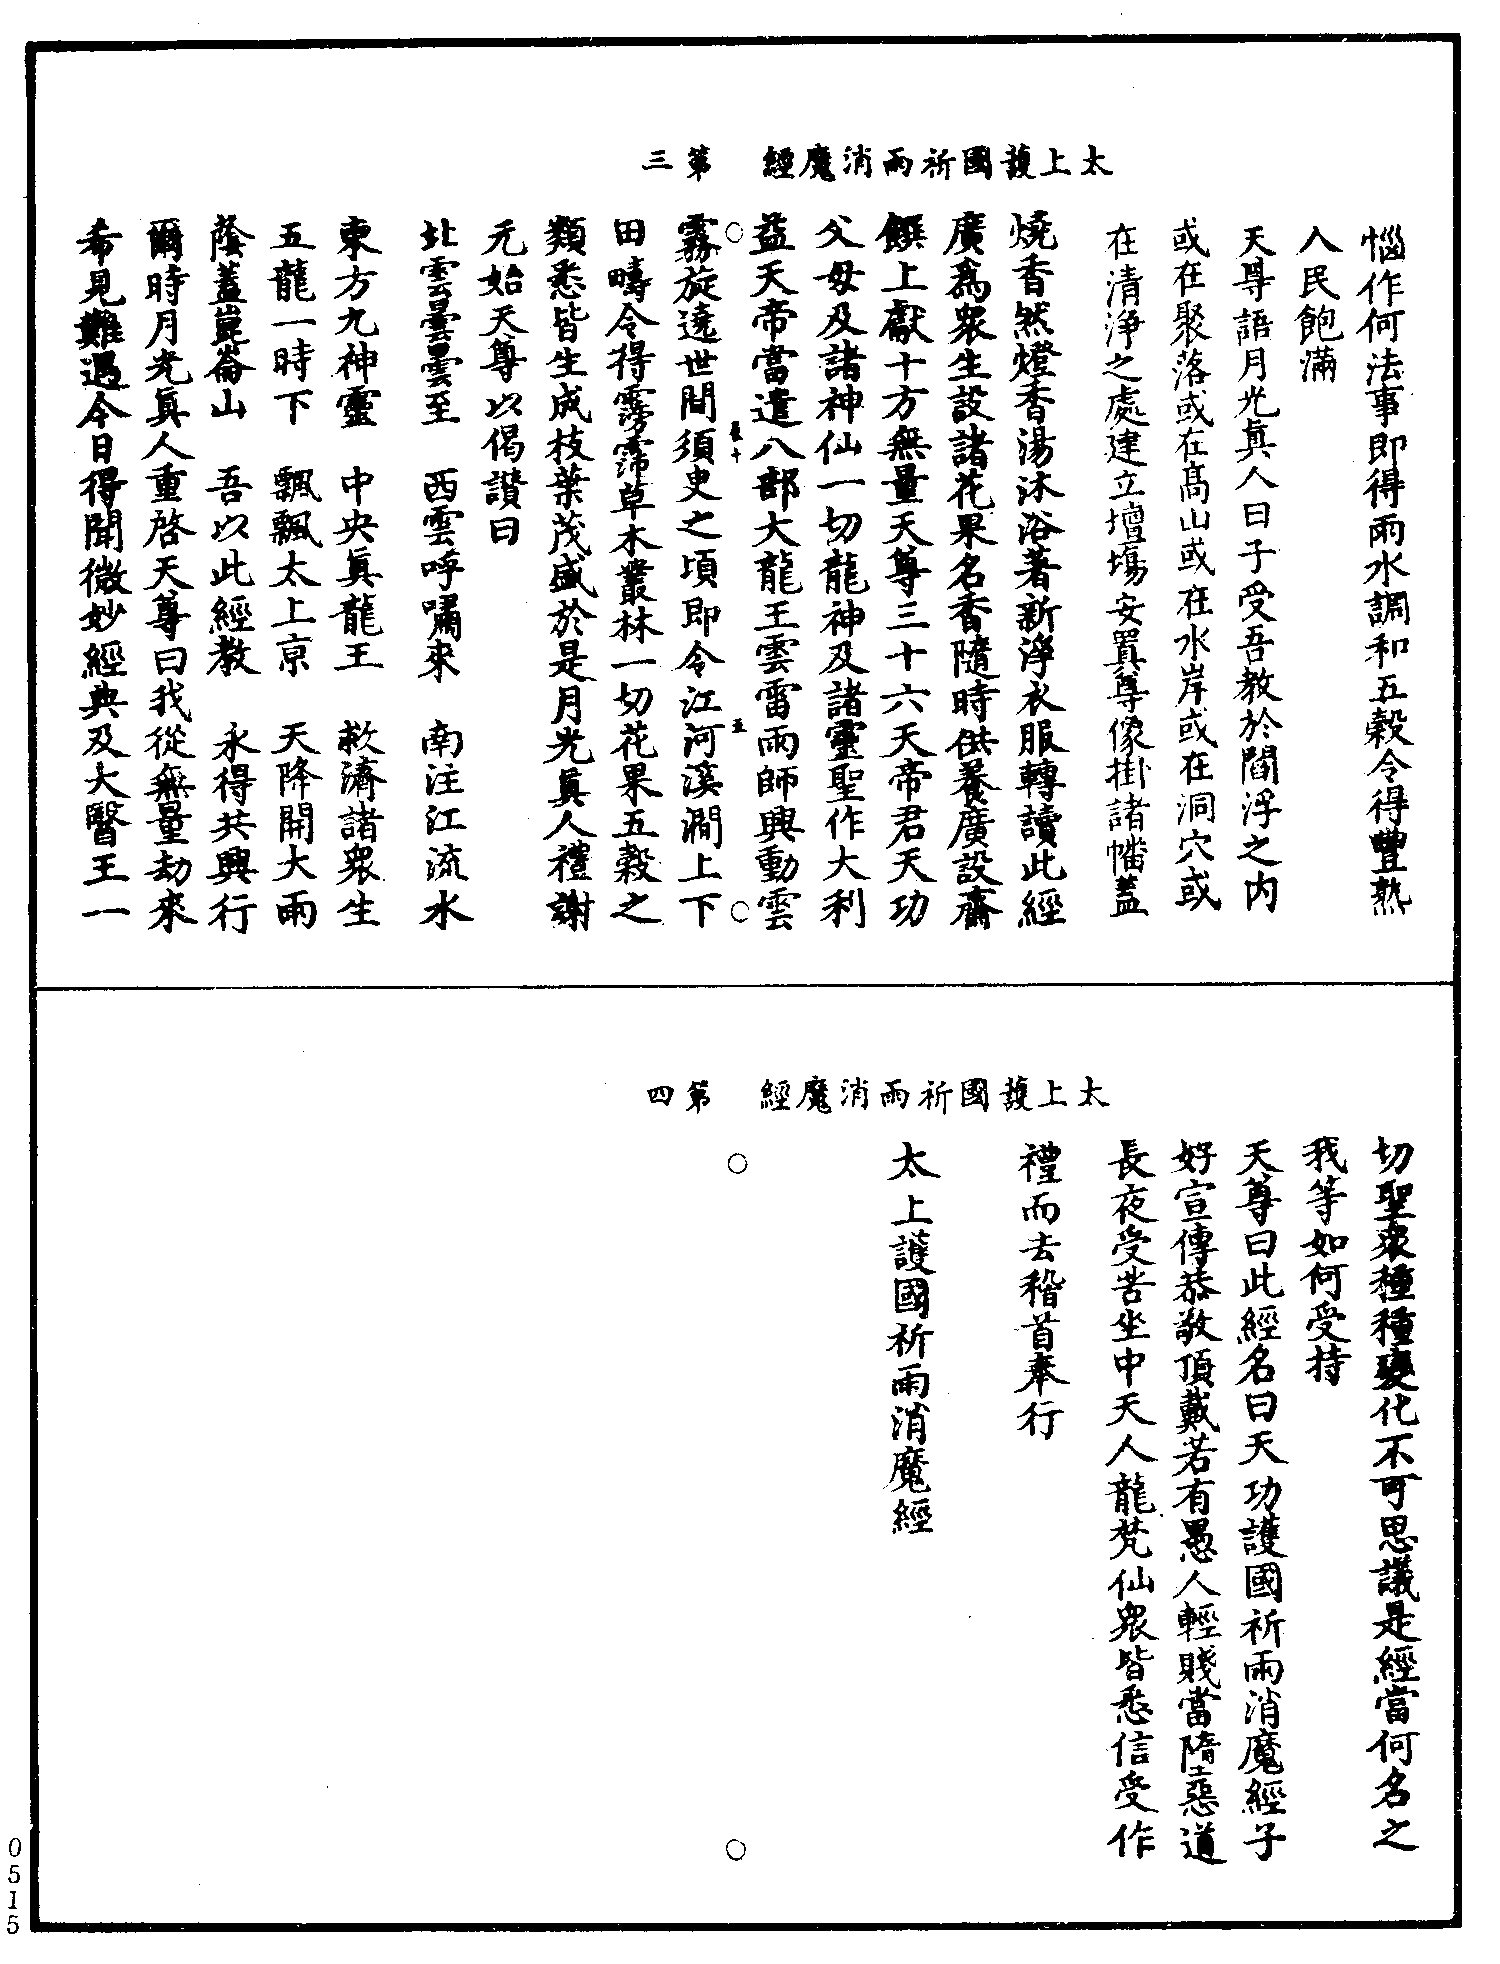 太上護國祈雨消魔經　第三
惱作何法事即得雨水調和五穀令得豐熟
人民飽滿
天尊語月光眞人曰子受吾教於閻浮之内
或在聚落或在髙山或在水岸或在洞穴或
在清淨之處建立壇場安置尊像掛諸幡蓋
燒香然燈香湯沐浴著新淨衣服轉讀此經
廣爲衆生設諸花果名香隨時供養廣設齋
饌上獻十方無量天尊三十六天帝君天功
父母及諸神仙一切龍神及諸靈聖作大利
益天帝當遣八部大龍王雲雷雨師興動雲
霧旋遶世間須臾之頃即令江河溪澗上下
田疇令得霶霈草木叢林一切花果五穀之
類悉皆生成枝葉茂盛於是月光眞人禮謝
元始天尊以偈讚曰
北雲曇曇至　西雲呼嘯來　南注江流水
東方九神靈　中央眞龍王　救濟諸衆生
五龍一時下　飄飄太上京　天降開大雨
蔭蓋崑崙山　吾以此經教　永得共興行
爾時月光眞人重啓天尊曰我從無量劫來
希見難遇今日得聞微妙經典及大醫王一
太上護國祈雨消魔經　第四
切聖衆種種變化不可思議是經當何名之
我等如何受持
天尊曰此經名曰天功護國祈雨消魔經子
好宣傳恭敬頂戴若有愚人輕賤當隋惡道
長夜受苦坐中天人龍梵仙衆皆悉信受作
禮而去稽首奉行
太上護國祈雨消魔經
0515